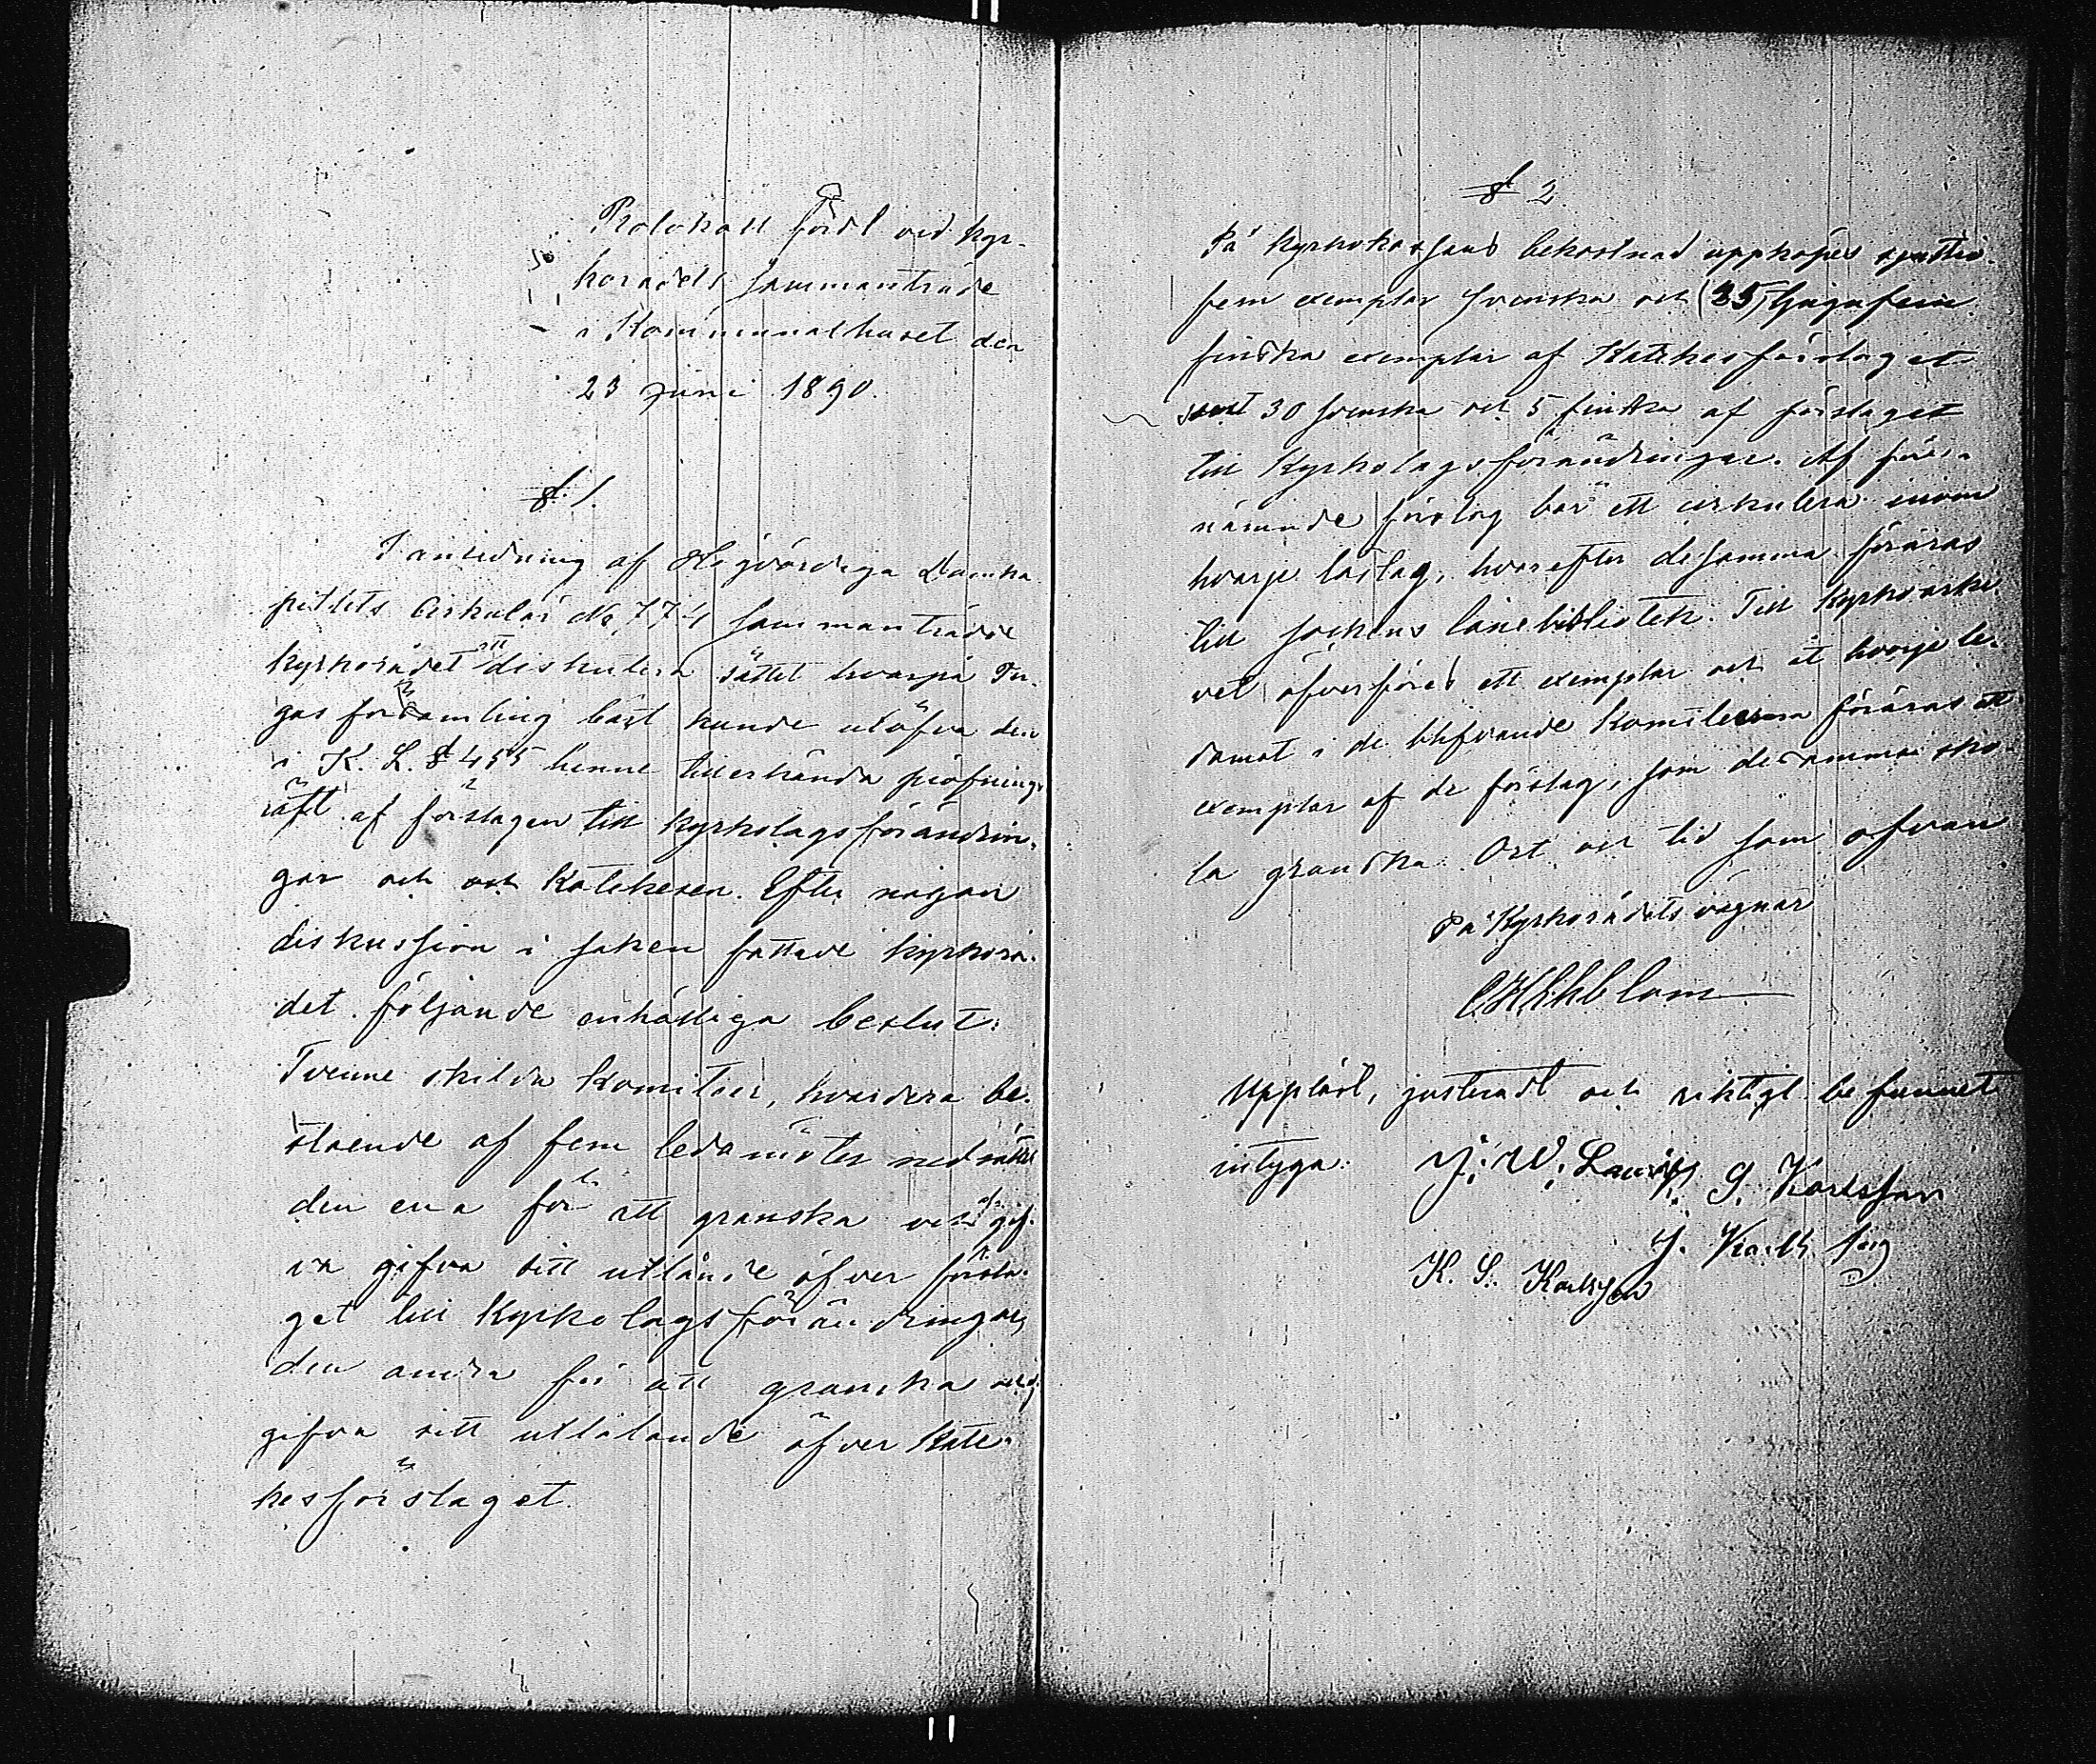 Protokoll fördt vid kyr-
korådets sammanträde
i Kommunalhuset den
23 juni 1890.
§ 1.
I anledning af Högvördiga Domka
pitlets Cirkulär No 774 sammanträdde
kyrkorådet att diskutera sättet hvarpå Te-
gas församling bäst kunde utöfva den
i K. L. § 455 henne tillerkända pröfnings
rätt af förslagen till kyrkolagsförändrin-
gar och och Katekesen. Efter någon
diskussion i saken fattade kyrkorå-
det följande enhälliga beslut:
Tvenne skilda Komitéer, hvardera be-
stående af fem ledamöter nedsättes
den ena för att granska och gif-
va gifva sitt utlånde öfver försla-
get till Kyrkolagsförändringar,
den andra för att granska och
gifva sitt utlåtande öfver Kate-
kesförslaget.
§ 2
På kyrkokassans bekostnad uppköpes sjuttio-
fem exemplar svenska och (25) tjugufem
finska exemplar af Katekesförslaget
samt 30 svenska och 5 finska af förslaget
till Kyrkolagsförändringar. Af först-
nämnde förslag bör ett cirkulera inom
hvarje läslag, hvarefter desamma föräras
till sockens lånebibliotek. Till Kyrkoarki-
vet öfverföres ett exemplar och åt hvarje le-
damot i de blifvande Komiteerna föräras ett
exemplar af de förslag, som desamma sko-
la granska. Ort och tid som ofvan
På Kyrkorådets vägnar
Uppläst, justeradt och riktigt befunnet
intyga: J. W. G. Karlsson
K. S. Karlsson J.